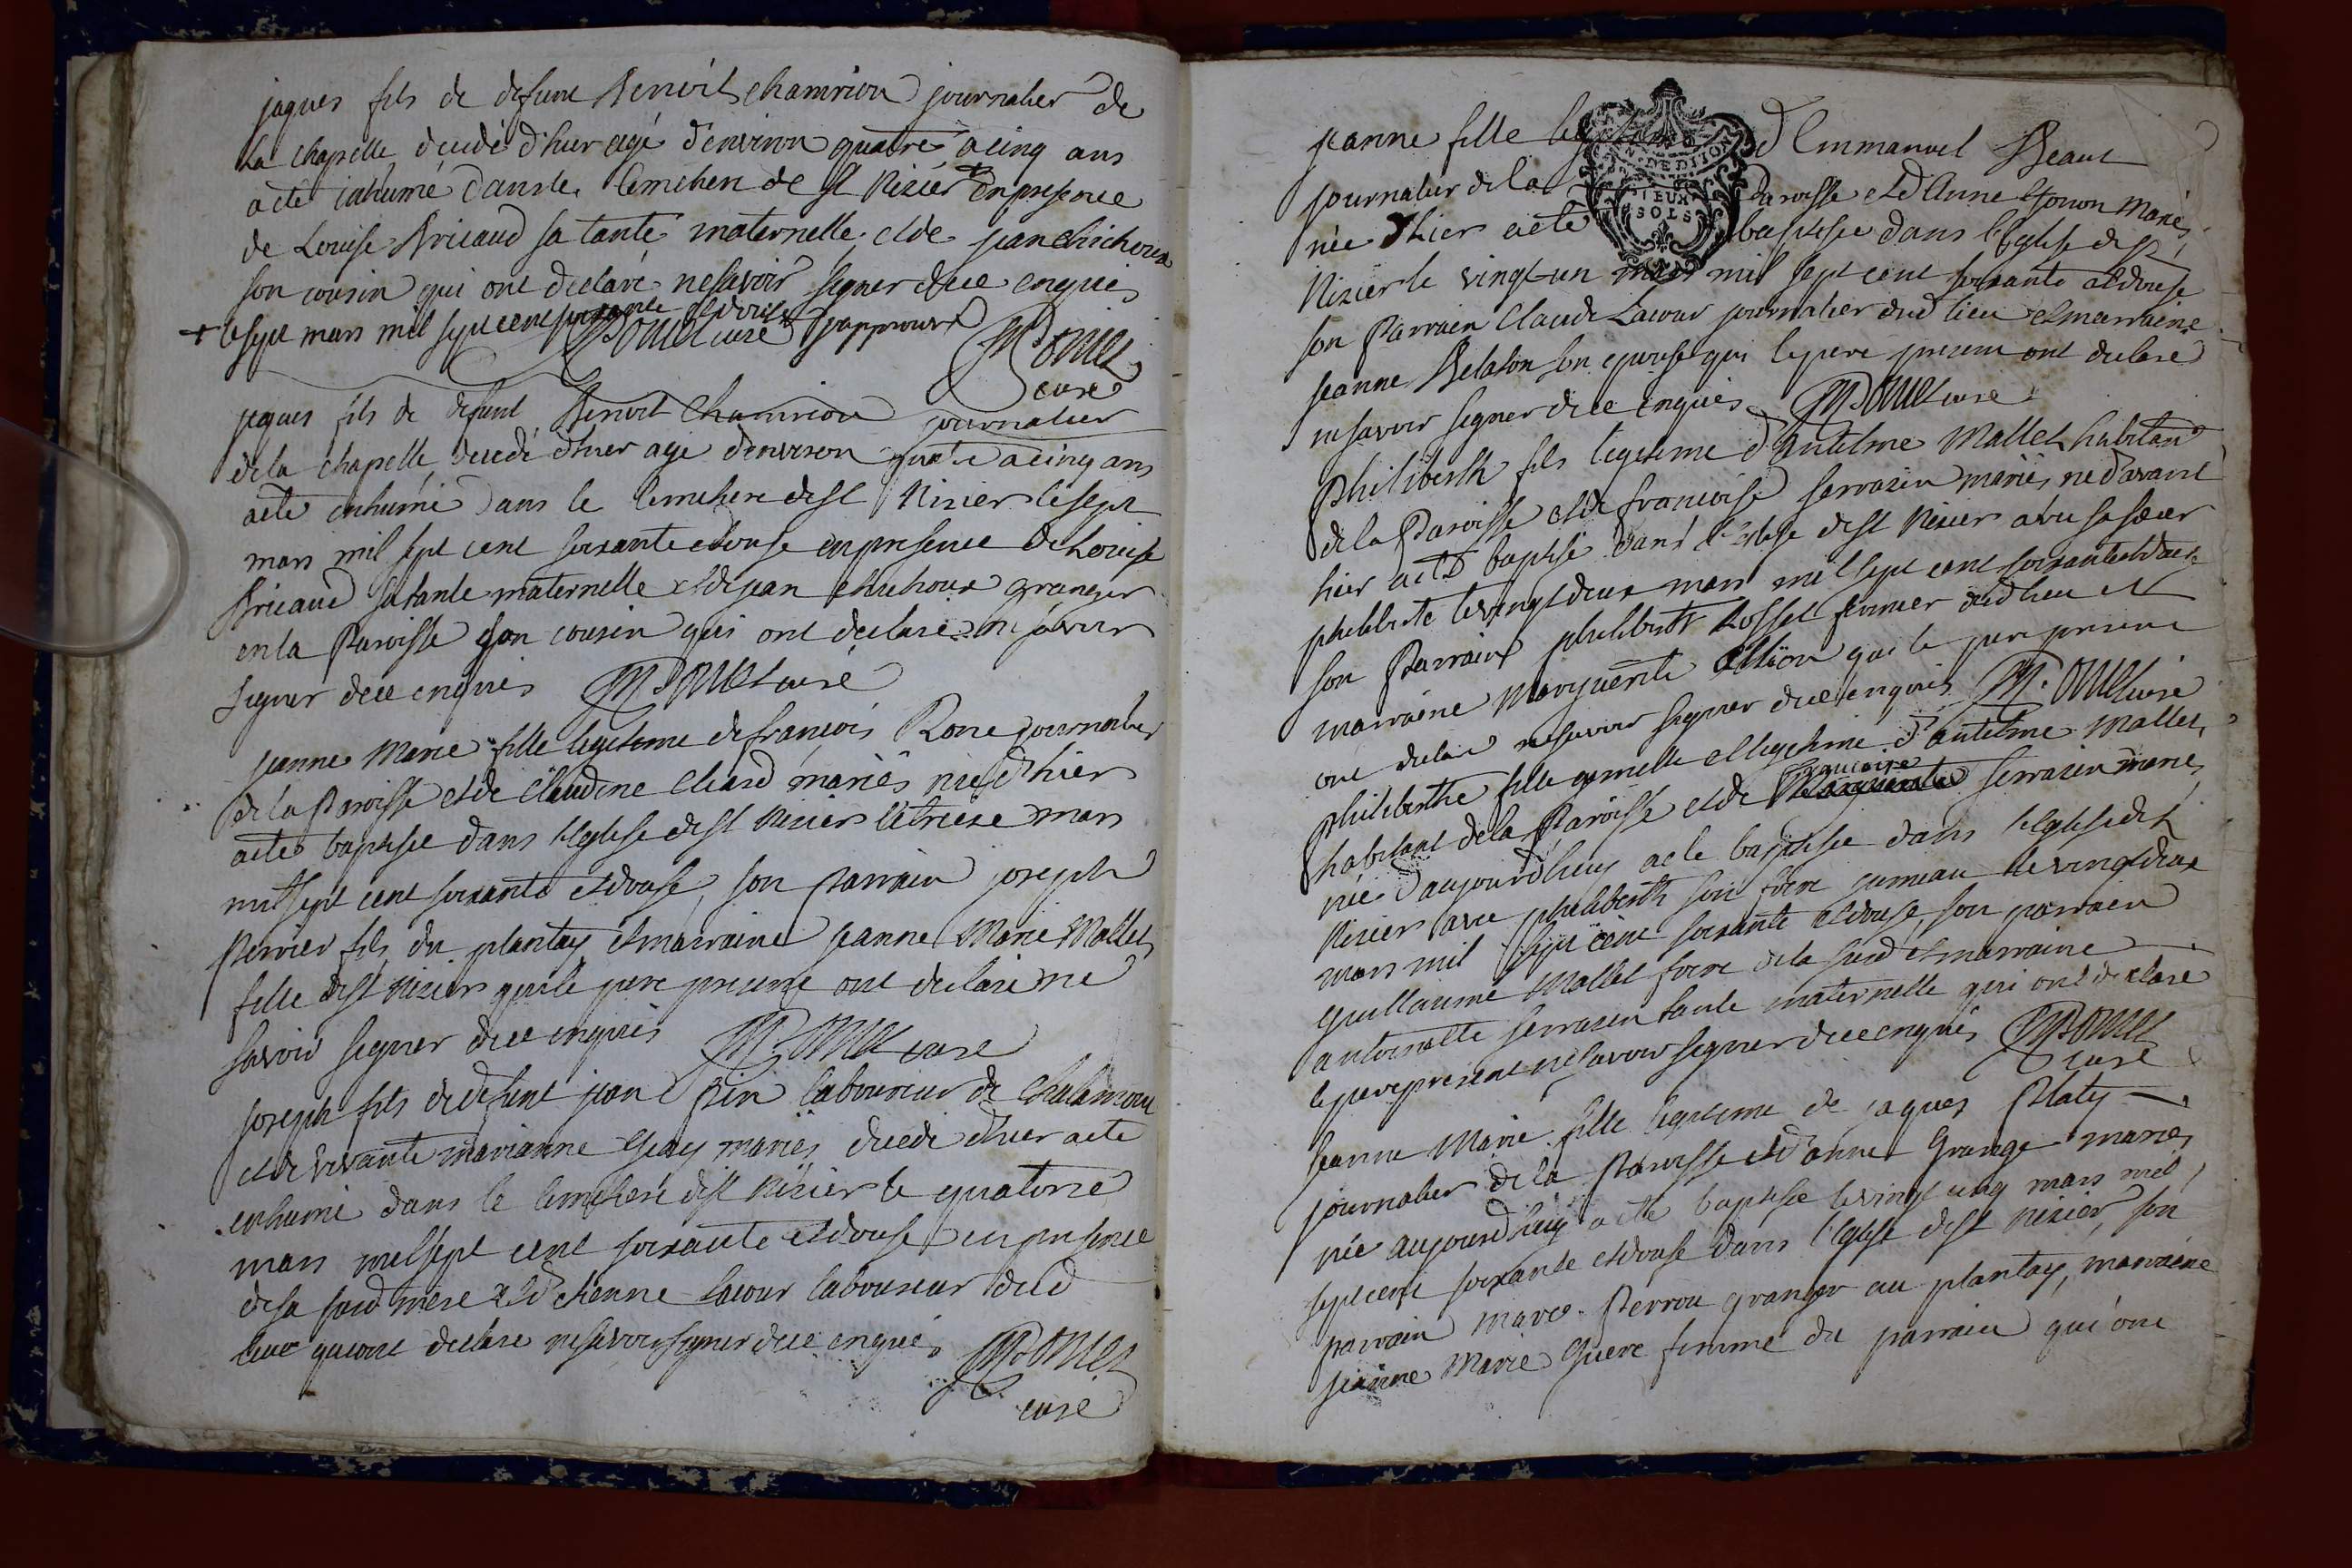 jaques fils de defunt Benoit chamrion journalier de
La chapelle decedé d'hier agé d'environ quatre a cinq ans
a eté inhumé dans le cimetiere de St Nizier + en presence
de Louise Bricaud sa tante maternelle et de jean chichoux
son cousin qui ont declaré ne savoir signer de ce enquis
+ le sept mars mil sept cent soixante et douse j'approuve
M. Ouiet curé
cure
jaques fils de defunt Benoit Chamrion journalier
de la chapelle decedé d'hier agé d'environ quatre a cinq ans
a eté inhumé dans le cimetiere de St Nizier le sept
mars mil sept cent soixante et douse en presence de Louise
Bricaud sa tante maternelle et de jean chichoux granger
en la Paroisse son cousin qui ont declaré ne savoir
signer de ce enquis curé
jeanne Marie fille legitime de françois Rone journalier
de la Paroisse et de Claudine Chard mariés née d'hier
a eté baptisée dans l'eglise de St Nizier le treize mars
mil sept cent soixante et douse, son parrain joseph
Perrier fils du plantay et marraine jeanne Marie Mallet
fille de St Nizier qui le pere present ont declaré ne
savoir signer de ce enquis cure
joseph fils de defunt jean Pin laboureur de Chalamont
et de vivante marianne Geay mariés decedé d'hier a eté
enhumé dans le cimetiere de St Nizier le quatorse
mars mil sept cent soixante et douse en presence
de sa ditte mere et d'etienne Lacour laboureur dud
lieu qui ont declaré ne savoir signer de ce enquis
curé
jeanne fille legitime d'Emmanuel Beaut
DEUX
SOLS
journalier de la Paroisse et d'Anne mariés
née d'hier a eté baptisée dans l'Eglise de St
Nizier le vingt un mars mil sept cent soixante et douse
son Parrain Claude Lacour journalier dud lieu et marraine
jeanne Belaton son epouse qui le pere present ont declaré
ne savoir signer de ce enquis curé
Philiberth fils legitime d'Antelme Mallet habitant
de la Paroisse et de françoise serrasin mariés, né d'avant
hier a eté baptisé dans l'Eglise de St Nizier avec sa sœur
philiberte le vingt deux mars mil sept cent soixante et douse
son Parrain philiberth Rosset fermier dud lieu et
marraine Marguerite qui le pere present
ont declaré ne savoir signer de ce enquis curé
Philiberthe fille gemelle et legitime d'antelme Mallet
habitant de la Paroisse et de françoise serrasin mariés
née d'aujourd'huy a eté baptisée dans l'Eglise de St
Nizier avec philiberth son frere jumeau le vingt deux
mars mil sept cent soixante et douse, son parrain
Guillaume Mallet frere de la sud et marraine
antoinette serrasin tante maternelle qui ont declaré
le pere present ne savoir signer de ce enquis
curé
Jeanne Marie fille legitime de jaques Platy
journalier de la Paroisse et d'anne Grange mariés
née aujourd'huy a eté baptisée le vingt cinq mars mil
sept cent soixante et douse dans l'Eglise de St Nizier, son
parrain Marc Perrou granger au plantay, marraine
jeanne Marie Guere femme du parrain qui ont